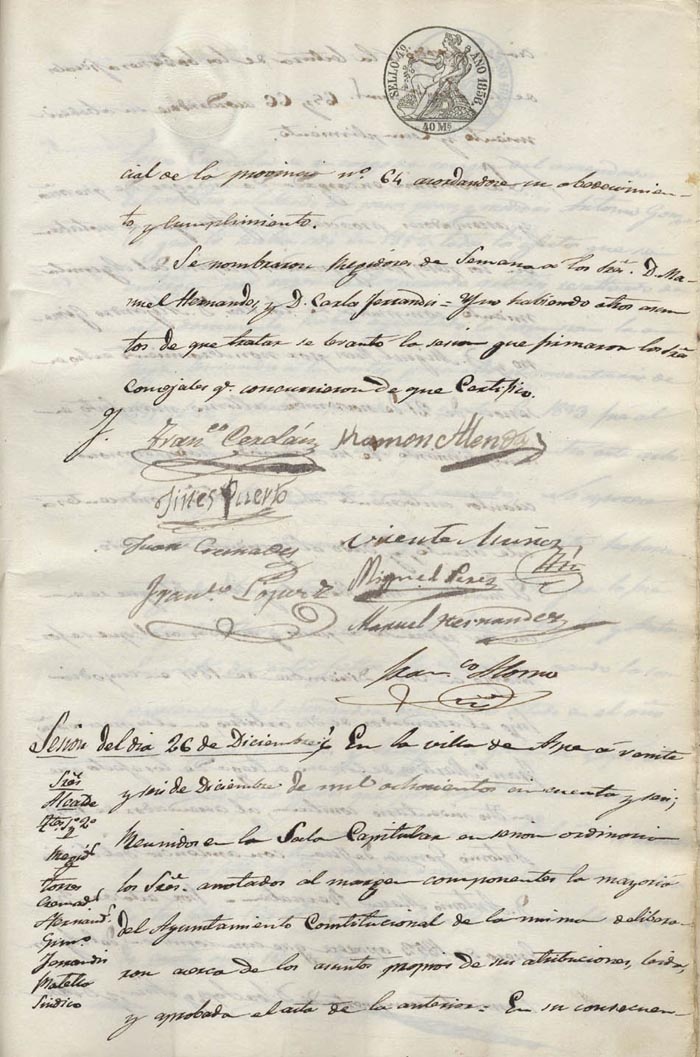 SELLO 4º. AÑO 1856.
40 Ms.
cial de la provincia nº. 64 acordandose su obedecimien-
to, y cumplimiento.
Se nombraron Regidores de Semana a los Sres. D. Ma-
nuel Hernandez, y D. Carlos Ferrandis = Y no habiendo otros asun
tos de que tratar se levantó la sesion que firmaron los Sres.
Concejales q. concurrieron de que Certifico.
Fran.co Cerdán Ramon Alenda
Gines Puerto
Juan Cremades Vicente Muñoz
Fran.co Lopez Miguel Perez
Manuel Hernandez
Fran.co Alonso
Sesion del dia 26 de Diciembre En la villa de Aspe á veinte
Sres. y seis de Diciembre de mil ochocientos cincuenta y seis;
Alcalde
2º
Regid.s Reunidos en la Sala Capitular en sesion ordinaria
Torres los Sres. anotados al margen componentes la mayoria
Cremad.s
Hernand.z del Ayuntamiento Constitucional de la misma delibera-
Gim.z
Ferrandis ron acerca de los asuntos propios de sus atribuciones, leida,
Síndico y aprobada el acta de la anterior = En su consecuen-